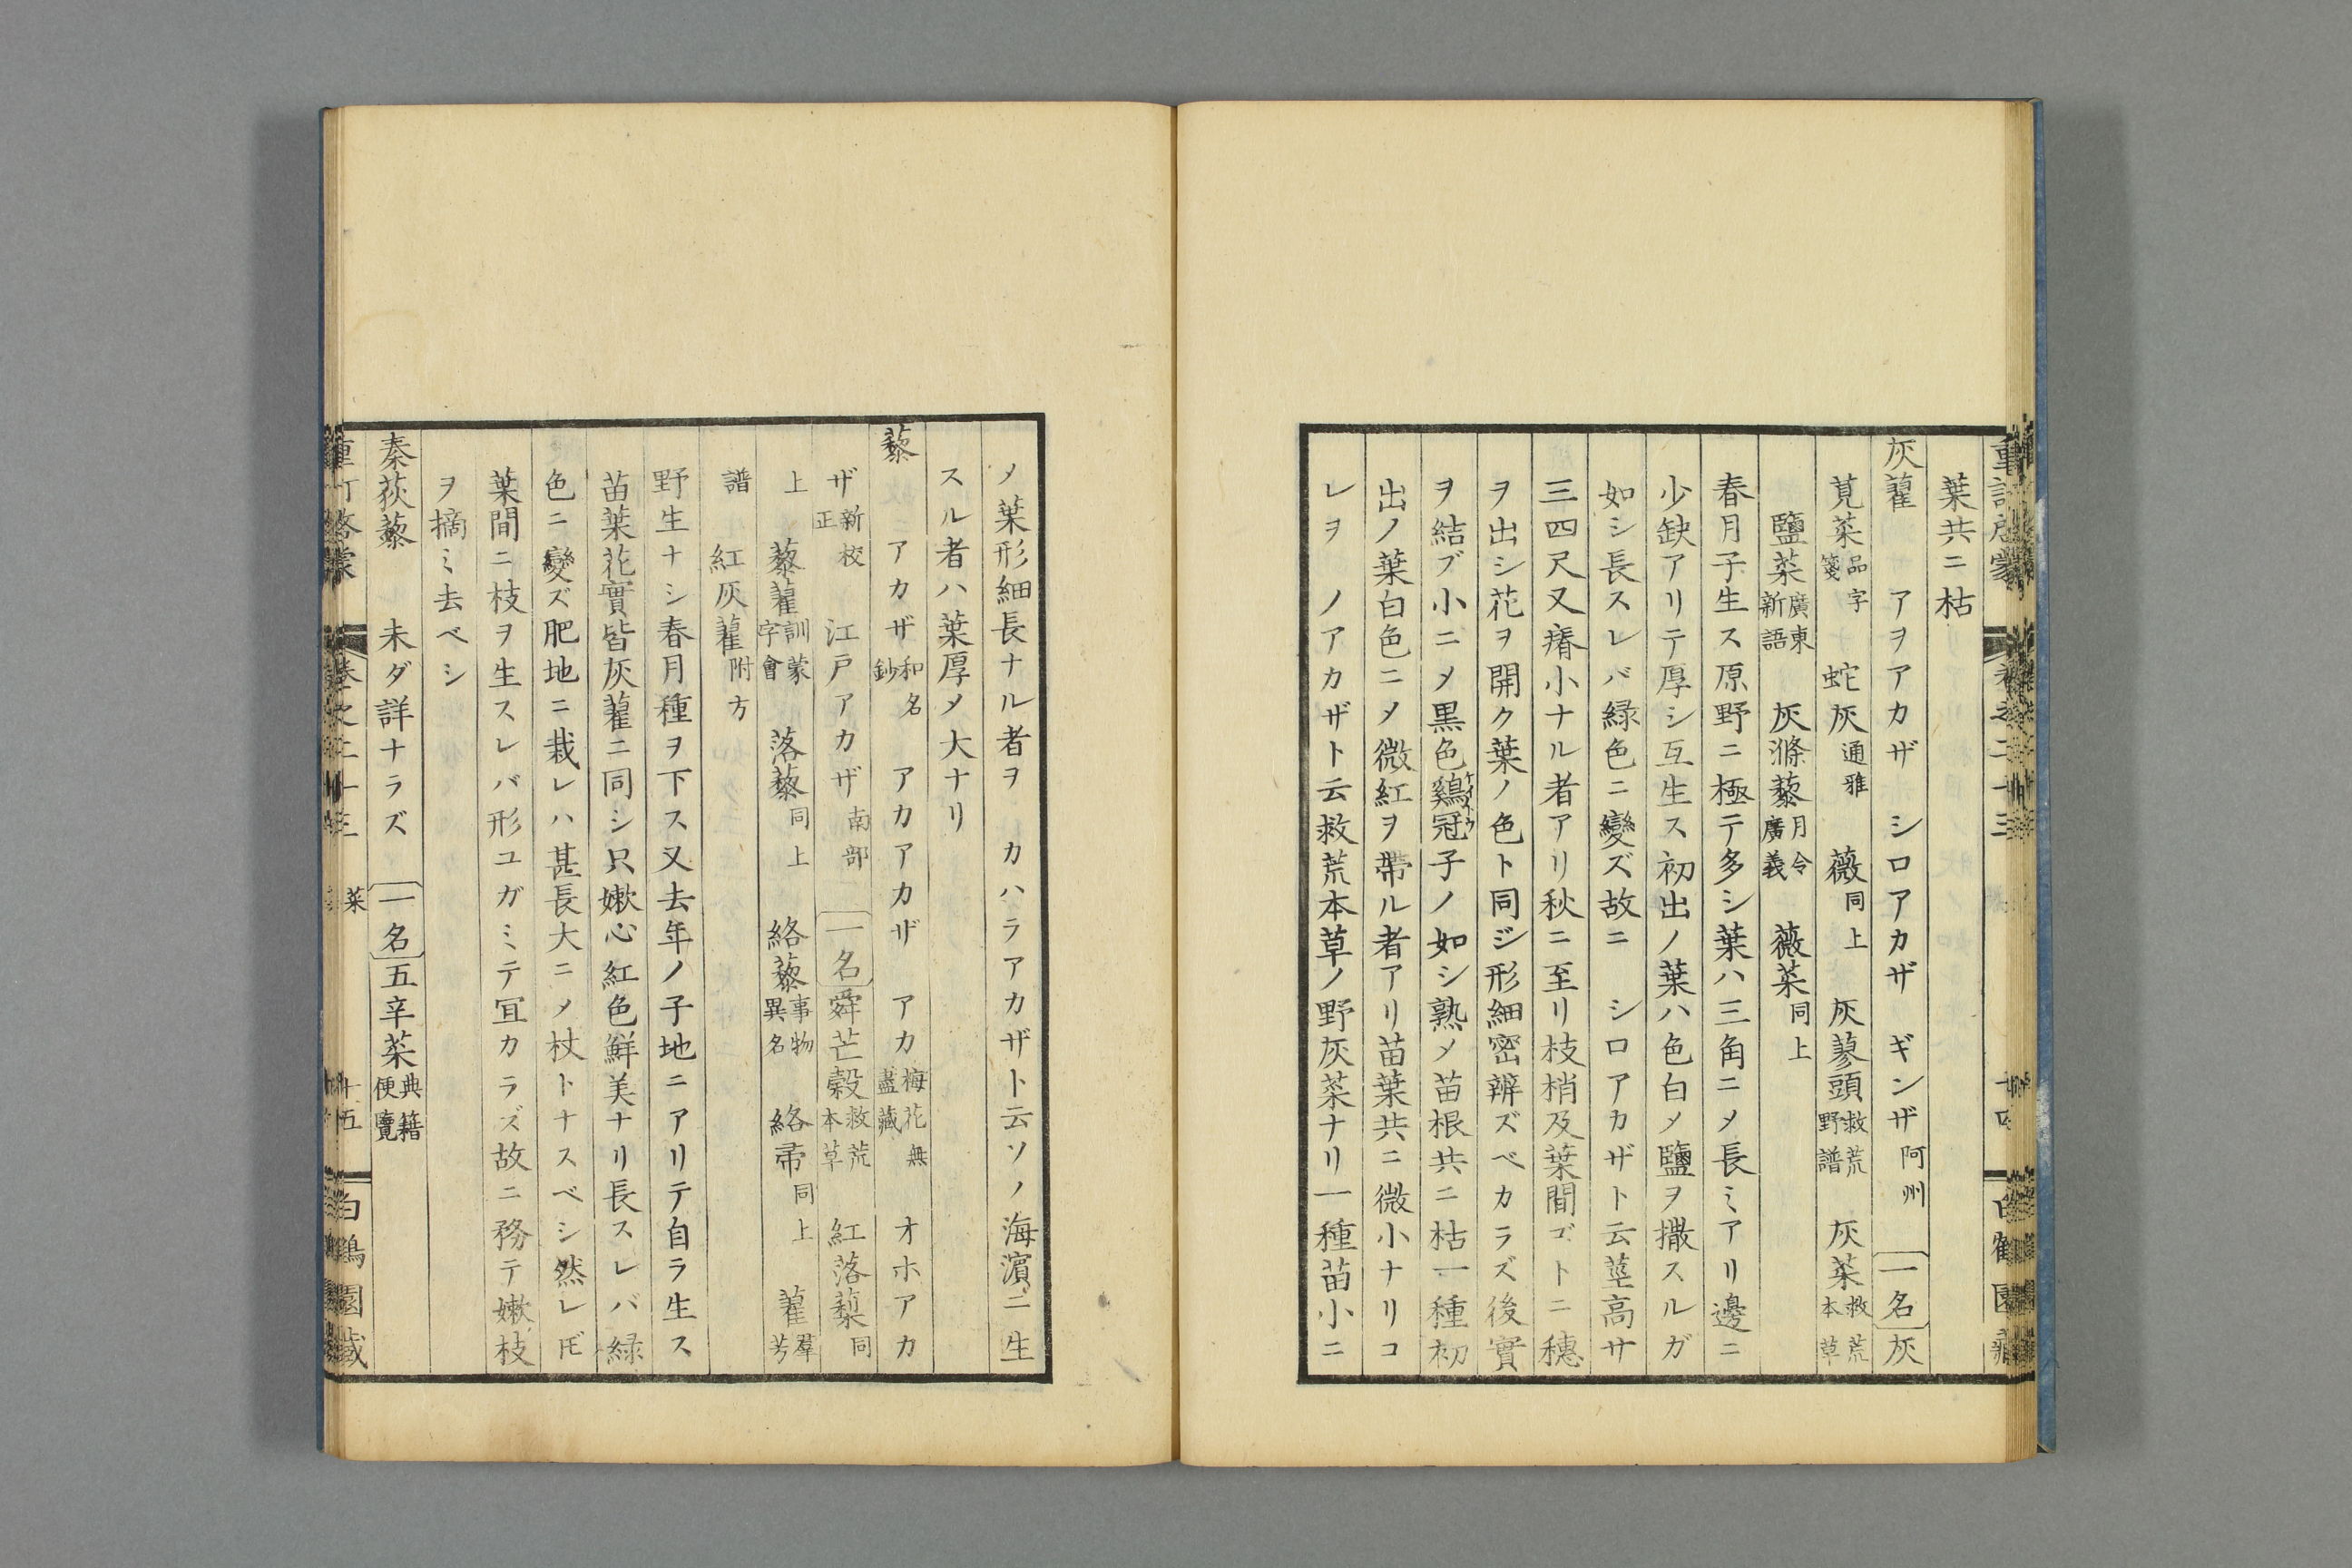 葉共ニ枯
灰藋 アヲアカザ シロアカザ ギンザ阿州 一名灰
莧菜品字箋 蛇灰通雅 薇同上 灰蓼頭救荒野譜 灰菜救荒本草
鹽菜廣東新語 灰滌藜月令廣義 薇菜同上
春月子生ス原野ニ極テ多シ葉ハ三角ニメ長ミアリ邊ニ
少缺アリテ厚シ互生ス初出ノ葉ハ色白メ鹽ヲ撒スルガ
如シ長スレバ緑色ニ變ズ故ニ シロアカザト云莖高サ
三四尺又瘠小ナル者アリ秋ニ至リ枝梢及葉間ゴトニ穗
ヲ出シ花ヲ開ク葉ノ色ト同ジ形細密辨ズベカラズ後實
ヲ結ブ小ニメ黒色鷄冠ケイトウ子ノ如シ熟メ苗根共ニ枯一種初
出ノ葉白色ニメ微紅ヲ帶ル者アリ苗葉共ニ微小ナリコ
レヲ ノアカザト云救荒本草ノ野灰菜ナリ一種苗小ニ
メ葉形細長ナル者ヲ カハラアカザト云ソノ海濵ニ生
スル者ハ葉厚メ大ナリ
藜 アカザ和名鈔 アカアカザ アカ梅花無盡藏 オホアカ
ザ新校正 江戸アカザ南部 一名舜芒穀救荒本草 紅落藜同
上 藜藋訓蒙字會 落藜同上 絡藜事物異名 絡帚同上 藋羣芳
譜 紅灰藋附方
野生ナシ春月種ヲ下ス又去年ノ子地ニアリテ自ラ生ス
苗葉花實皆灰藋ニ同シ只嫩心紅色鮮美ナリ長スレバ緑
色ニ變ズ肥地ニ栽レハ甚長大ニメ杖トナスベシ然レ𪜈
葉間ニ枝ヲ生スレバ形ユガミテ冝カラズ故ニ務テ嫩枝
ヲ摘ミ去ベシ
秦荻藜 未ダ詳ナラズ 一名五辛菜典籍便覽
菜
十五